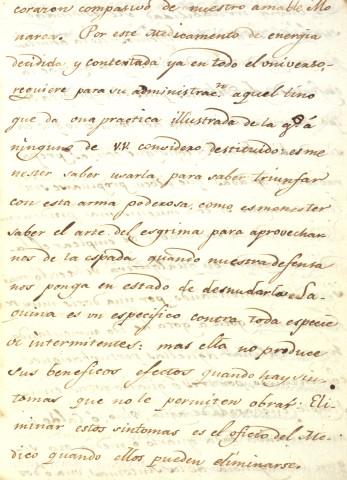 corazon compasivo de nuestro amable Mo
narca. Por este medicamento de energia
decidida y contextada ya en todo el universo,
requiere para su administracn. aquel tino
que da una practica illustrada de la q.e á
ninguno de V.V. considero destituido: es me
nester saber usarla, para saber triunfar
con esta arma poderosa, como es menester
saber el arte del esgrima para aprovechar
nos de la espada quando nuestra defensa
nos ponga en estado de desnudarla. La
quina es un especifico contra toda especie
de intermitentes: mas ella no produce
sus beneficos efectos quando hay sin
tomas que no le permiten obrar. Eli
minar estos sintomas es el oficio del Me
dico quando ellos pueden eliminarse.